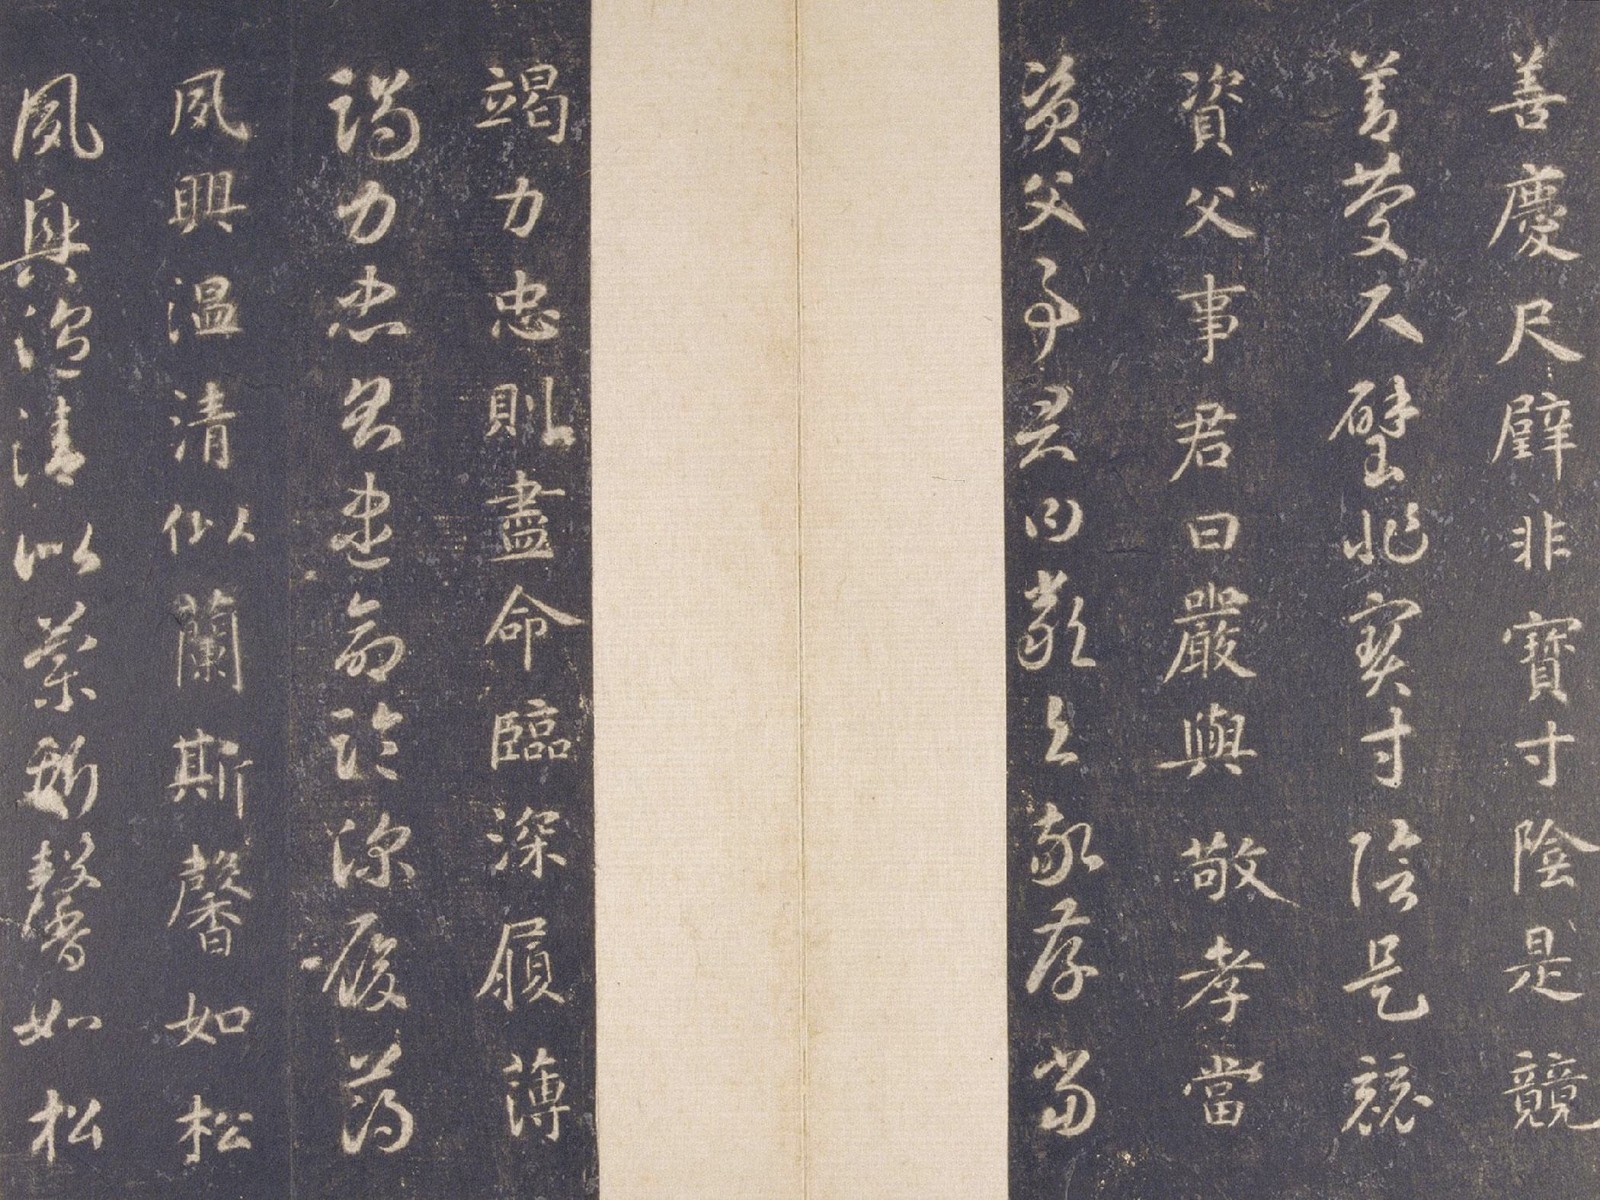 善慶尺璧非寶寸陰是競
善慶尺璧非寶寸陰是競
資父事君曰嚴與敬孝當
資父事君曰嚴與敬孝當
竭力忠則盡命臨深履薄
竭力忠則盡命臨深履薄
夙興溫凊似蘭斯馨如松
夙興溫凊似蘭斯馨如松